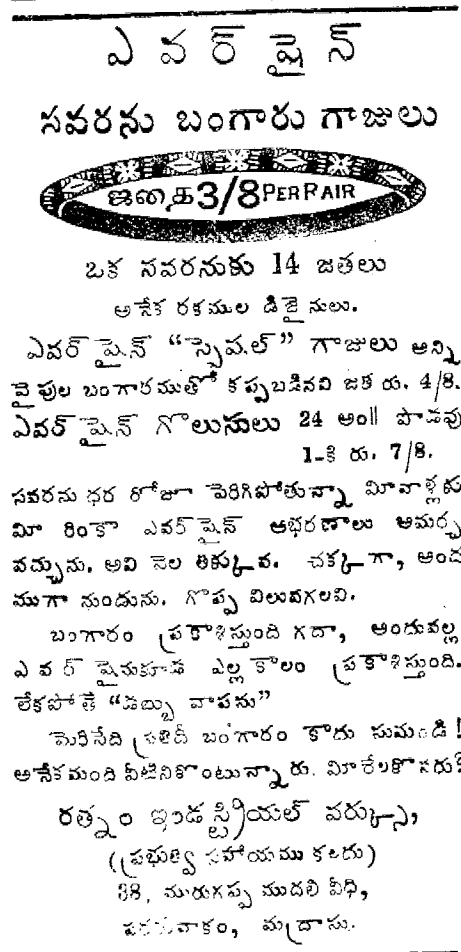 ఎవర్ షైన్
సవరను బంగారు గాజులు
ஜதை 3/8 PER PAIR
ఒక సవరనుకు 14 జతలు
అనేక రకముల డిజైనులు.
ఎవర్ షైన్ “స్పెషల్” గాజులు అన్ని
వైపుల బంగారముతో కప్పబడినవి జత రు. 4/8.
ఎవర్ షైన్ గొలుసులు 24 అం॥ పొడవు
1-కి రు. 7/8.
సవరను ధర రోజూ పెరిగిపోతున్నా మీవాళ్లకు
మీ రింకా ఎవర్ షైన్ ఆభరణాలు అమర్చ
వచ్చును. అవి వెల తక్కువ. చక్కగా, అంద
ముగా నుండును. గొప్ప విలువగలవి.
బంగారం ప్రకాశిస్తుంది గదా, అందువల్ల
ఎవర్ షైనుకూడ ఎల్ల కాలం ప్రకాశిస్తుంది.
లేకపోతే “డబ్బు వాపసు”
మెరిసేది ప్రతిదీ బంగారం కాదు సుమండి!
అనేకమంది వీటినికొంటున్నారు. మీరేలకొనరు?
రత్నం ఇండస్ట్రియల్ వర్క్సు,
(ప్రభుత్వ సహాయము కలదు)
38, మురుగప్ప ముదలి వీధి,
మద్రాసు.